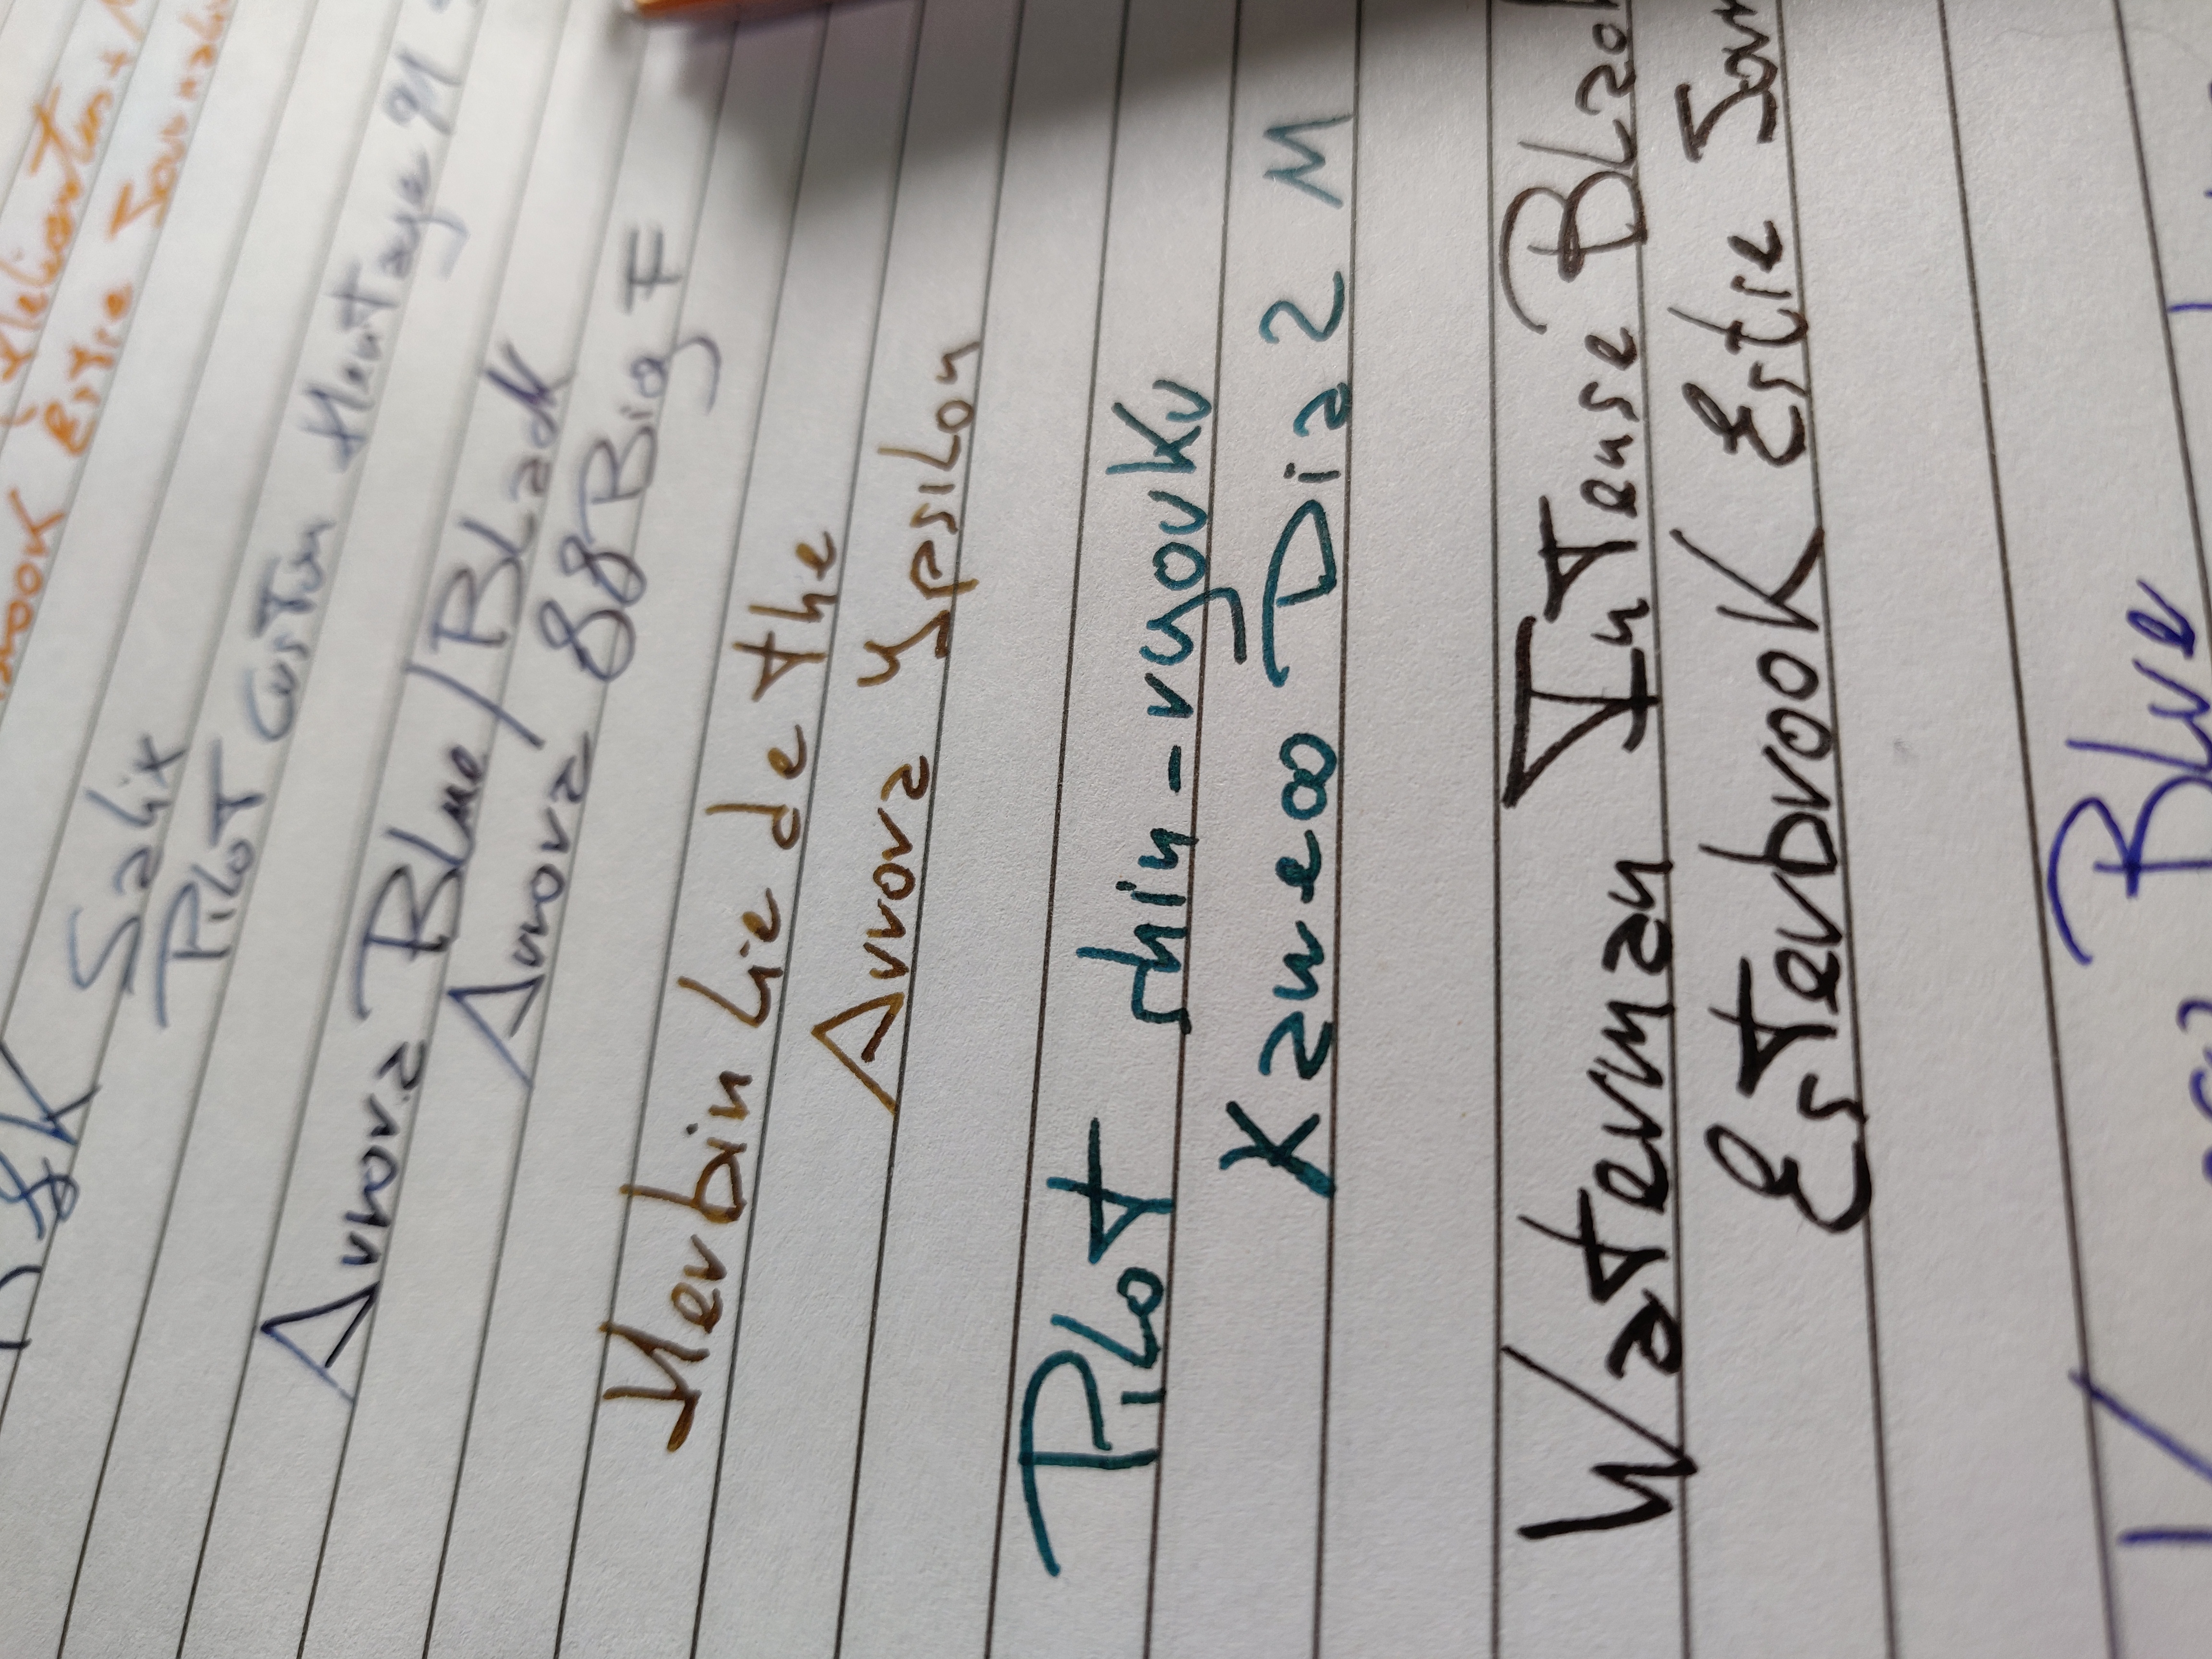 Estie Jour
R&K Salix
Pilot Custom Heritage 91
Aurora Blue/Black
Aurora 88 Big F
Herbin Lie de thé
Aurora Ypsilon
Pilot shin-ryouku
Kaweco Dia 2 M
Waterman Intense Blac
Esterbrook Estie Jour
Blue